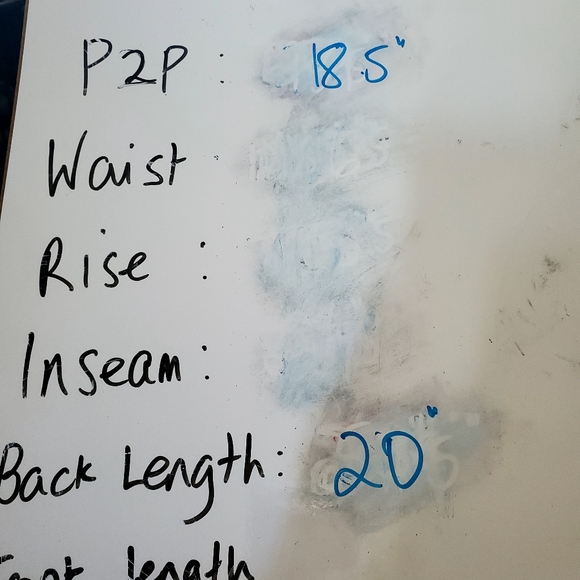 P2P : 18.5"
Waist
Rise :
Inseam :
Back Length : 20"
length